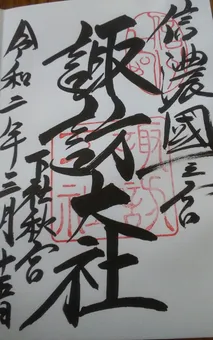 信濃國三之宮
諏訪大社
下社秋宮
令和二年三月十五日